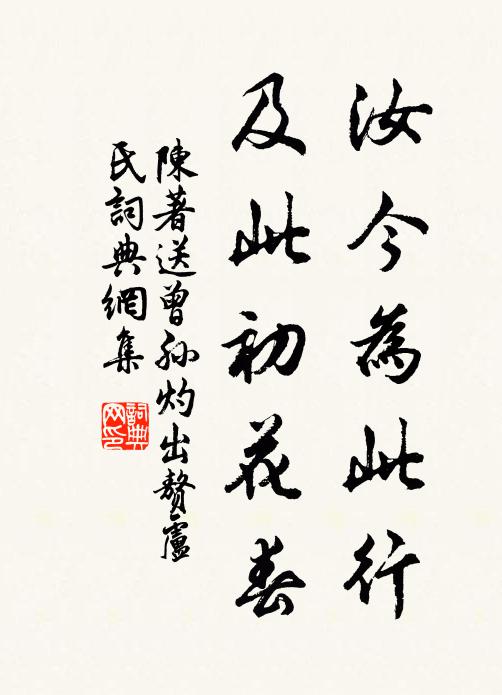 汝今為此行
及此初花春
陳著送曾孫灼出贅盧
氏詞典網集
詞典
网印